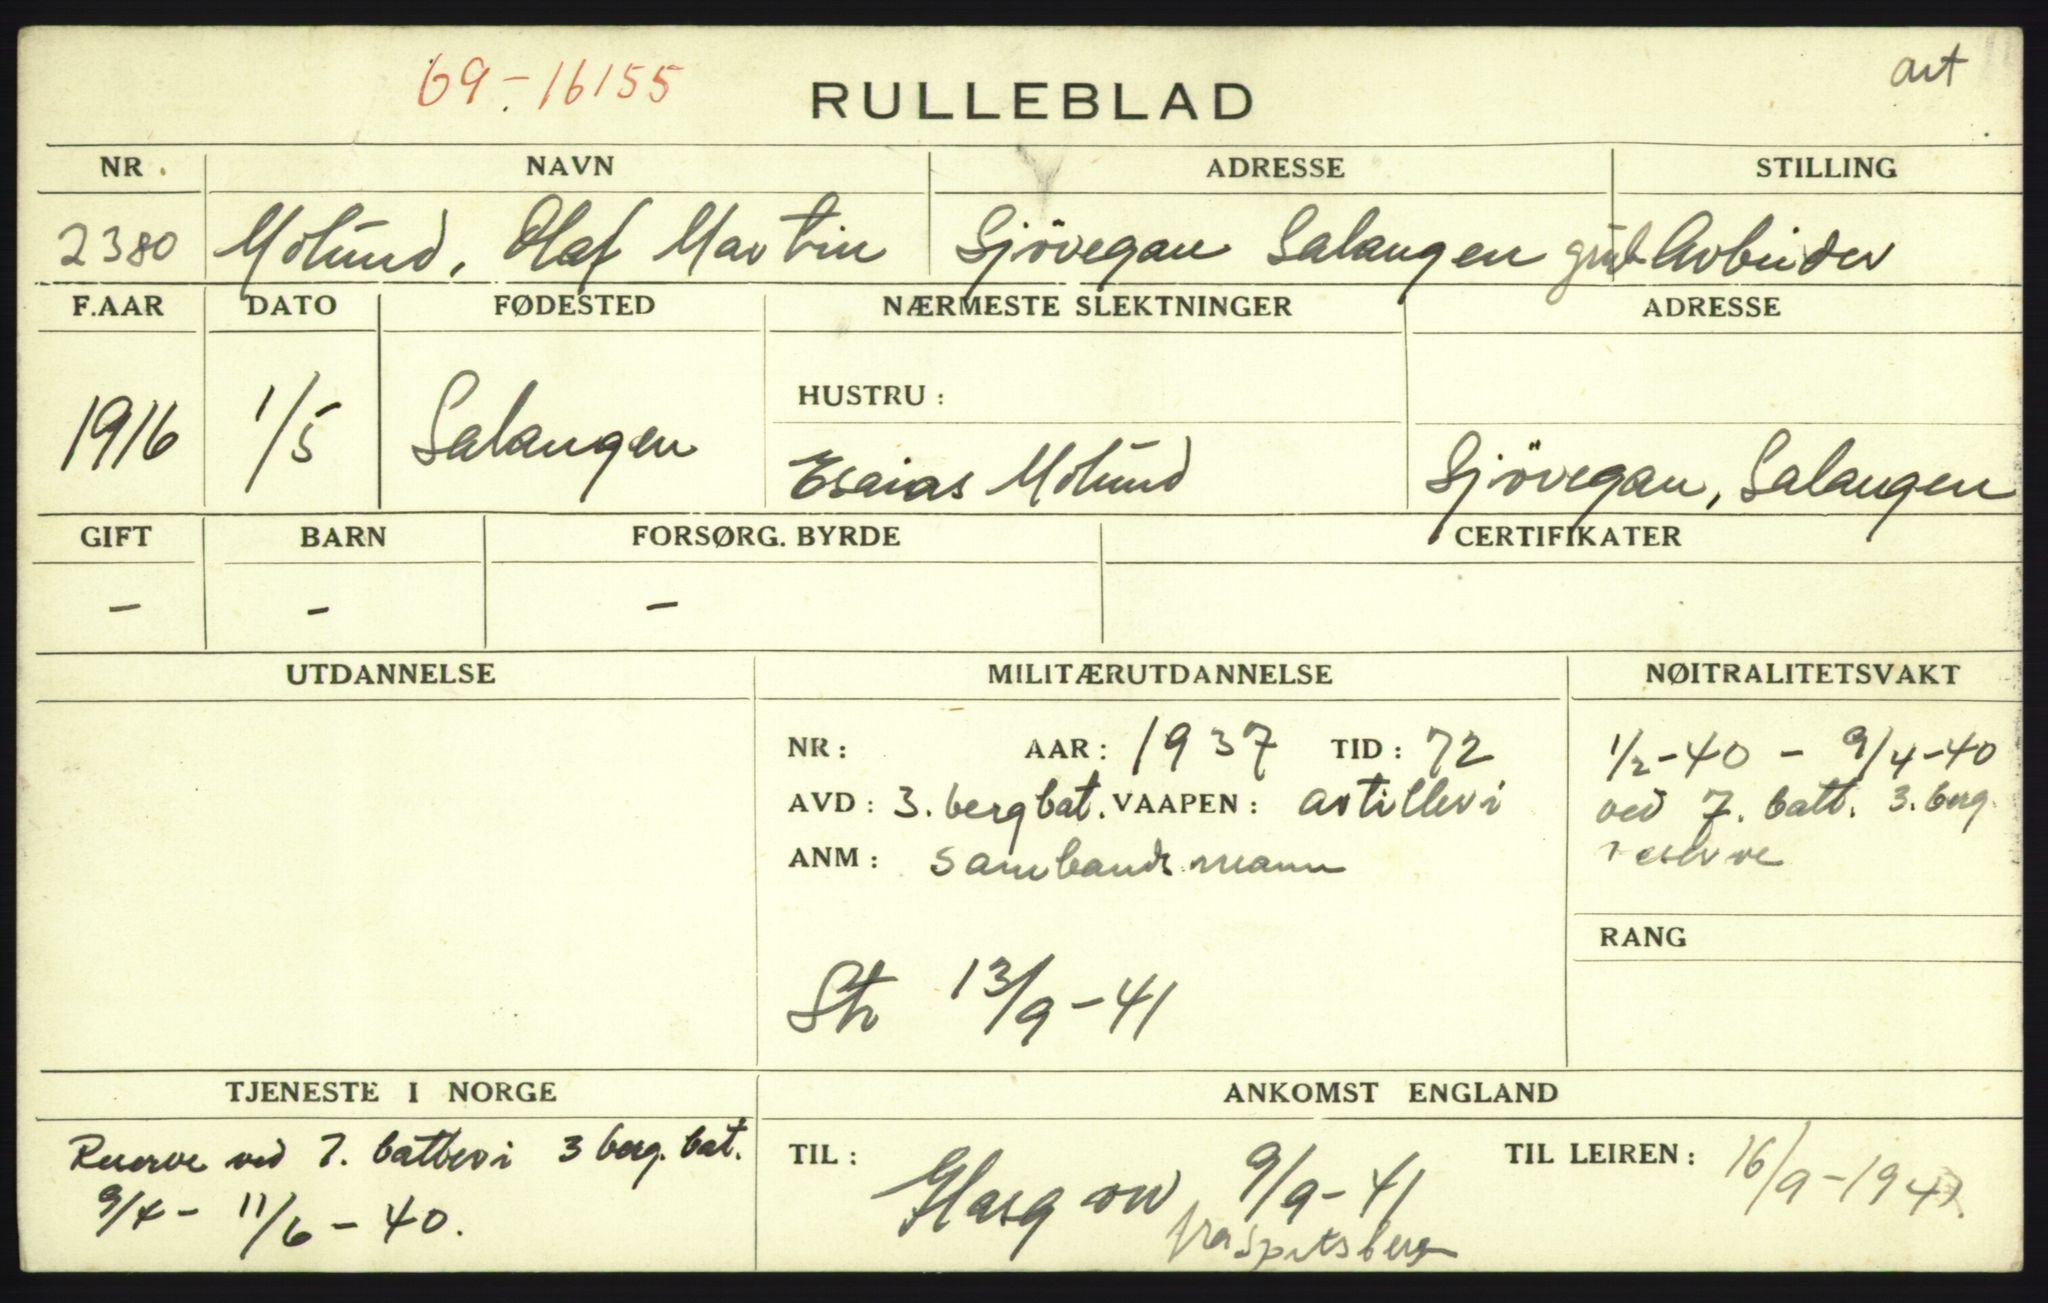 69-16155
art
RULLEBLAD
NR NAVN ADRESSE STILLING
2380 Molund, Olaf Martin Sjövegan Salangen Arbeider
F.AAR DATO FØDESTED NÆRMESTE SLEKTNINGER ADRESSE
1916 1/5 Salangen
HUSTRU:
Esaias Molund Sjövegan, Salangen
GIFT BARN FORSØRG. BYRDE CERTIFIKATER
– – –
UTDANNELSE MILITÆRUTDANNELSE NØITRALITETSVAKT
NR: AAR: 1937 TID: 72 1/2-40 - 9/4-40
AVD: 3. bergbat. VAAPEN: artilleri ved 7. batt. 3. berg.
ANM: sambandsmann reserve
RANG
Str 13/9-41
TJENESTE I NORGE ANKOMST ENGLAND
Reserve ved 7. batteri 3 berg. bat. TIL: Glasgow 9/9-41 TIL LEIREN: 16/9-1941.
9/4 - 11/6 - 40. fra Spitsberg